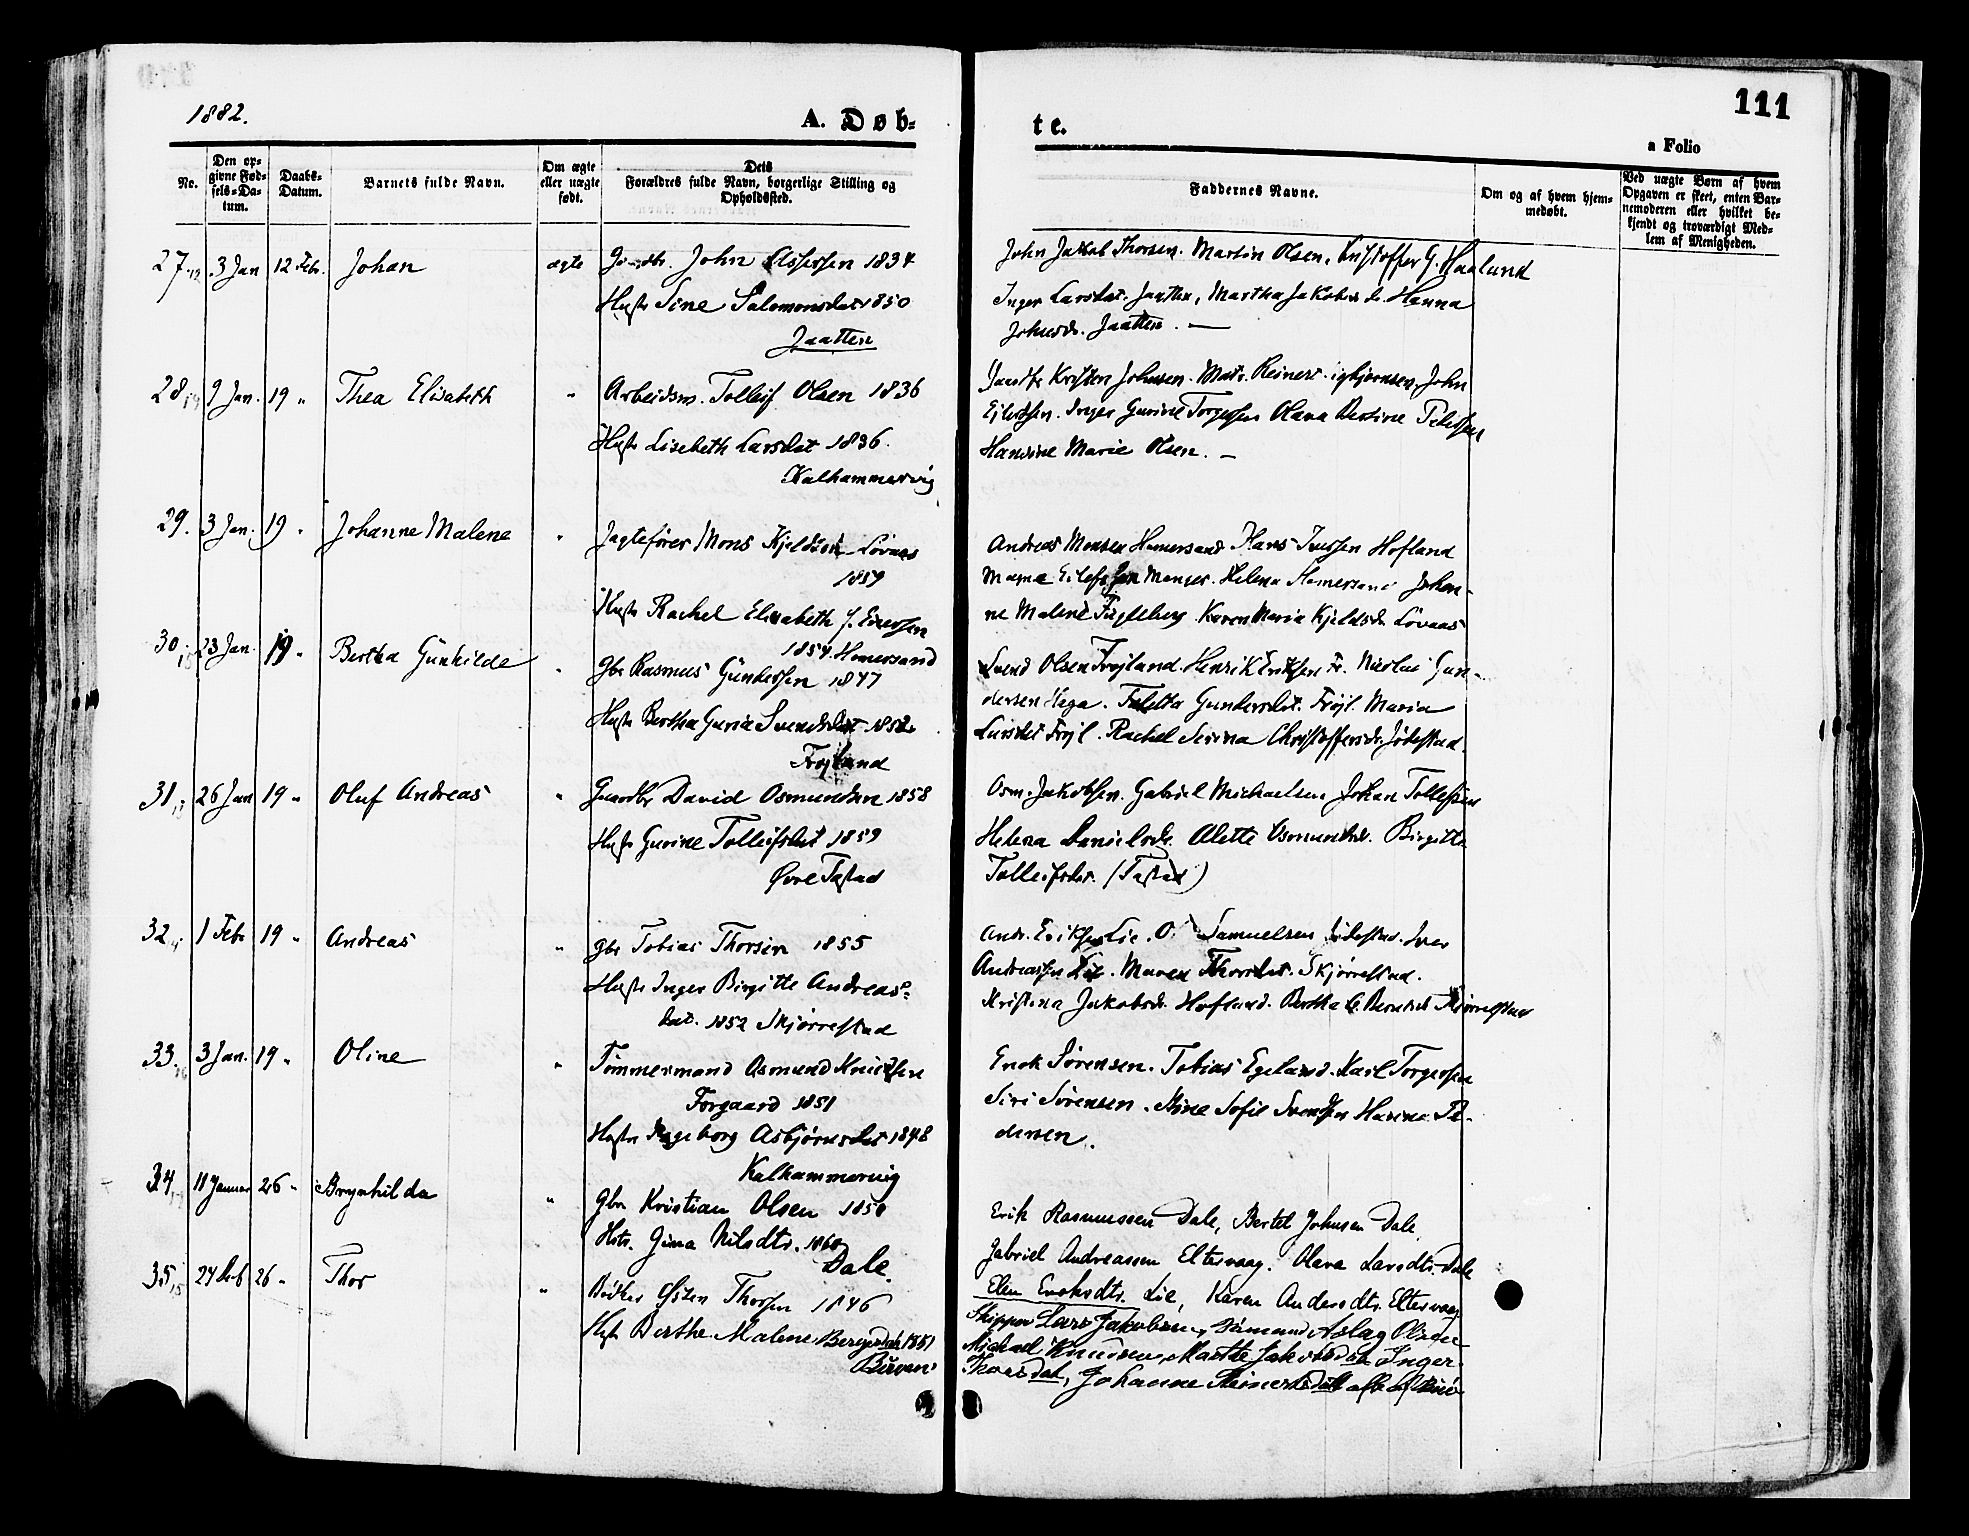 1882.
A. Døb=
te.
111
a Folio
No.
Den op=
givne Fød=
sels=Da=
tum.
Daabs=
Datum.
Barnets fulde Navn.
Om ægte
eller uægte
født.
Dets
Forældres fulde Navn, borgerlige Stilling og
Opholdssted.
Faddernes Navne.
Om og af hvem hjem=
medøbt.
Ved uægte Børn af hvem
Opgaven er skeet, enten Bar=
nemoderen eller hvilket be=
kjendt og troværdigt Med=
lem af Menigheden.
27 3 Jan 12 Febr. Johan ægte John Assersen 1834
Hustr Sine Salomonsdat 1850
Jaatten
John Jakob Thorsen. Martin Olsen, G. Haaland
Inger Larsdat. Jaatten, Martha Hanna
Johnsd. Jaatten. —
28 9 Jan. 19 " Thea Elisabeth " Arbeidsm. Tolleif Olsen 1836
Hustr Lisebeth Larsdat 1836.
Kalhammervig
Kristen Johnsen. Reinert John
Inger Gurine Torgersen Olava
Marie Olsen. —
29. 3 Jan. 19 " Johanne Malene " Jagtefører Mons Kjeldsen Lovaas
1859
Hustr Rachel Elisabeth
1854. Homersand
Andreas Monsen Homersand Hans Hofland
Helena Homersand Johan-
ne Malene Fugleberg. Karen Maria Kjeldsd. Lovaas
30 23 Jan. 19 " Bertha Gunhilde " Gbr Rasmus Gundersen 1847
Hustr Bertha Guria Svendsdat 1852
Frøjland
Svend Olsen Frøjland. Henrik Eriksen Fr. Nicolai Gun-
dersen Haga. Gundersdat. Frøjl. Maria
Larsdat Frøjl. Rachel Serina Christoffersd. Jødestad.
31 26 Jan 19 " Oluf Andreas " Gaardbr David Osmundsen 1858
Hustr Gurine Tolleifsdat 1859
Øvre Tastad
Osm. Jakobsen. Gabriel Michaelsen Johan Tollefsen
Helena Danielsd. Alette Osmundsd. Birgitte
Tolleifsdat. (Tastad)
32 1 Febr 19 " Andreas " gbr Tobias Thorsen 1855
Hustr Inger Birgitte Andreas=
dat. 1852 Skjørrestad
Andr. Eriksen Lie. Samuelsen Jødestad. Iver
Andreassen Lie. Maren Thorsdat. Skjørrestad.
Kristina Jakobsd. Hofland. Bertha Skjørrestad
33. 3 Jan. 19 " Oline " Tømmermand Osmund Knudsen
Forgaard 1851
Hustr Ingeborg Asbjørnsdat 1848
Kalhammervig
Enok Sørensen. Tobias Egeland. Karl Torgersen
Siri Sørensen. Stine Sofie Svendsen Hanna Pe-
dersen.
34 11 Januar 26 " Brynhilda " gbr Kristian Olsen 1850
Hstr. Gina Nilsdtr. 1860
Dale.
Erik Rasmussen Dale, Bertel Johnsen Dale,
Gabriel Andreassen Eltervaag. Olava Larsdtr. Dale
Elen Enoksdtr. Lie, Karen Andersdtr. Eltervaag
35 26 " Thor " Bødker Østen Thorsen 1846
Hustr Berthe Malene 1851
Buøen
Skipper Lars Jakobsen, Sømand Aslag Olsen
Michael Knudsen, Marthe Jakobsdat Inger
Thorsdat, Johanne Reinertsdat alle af Buø